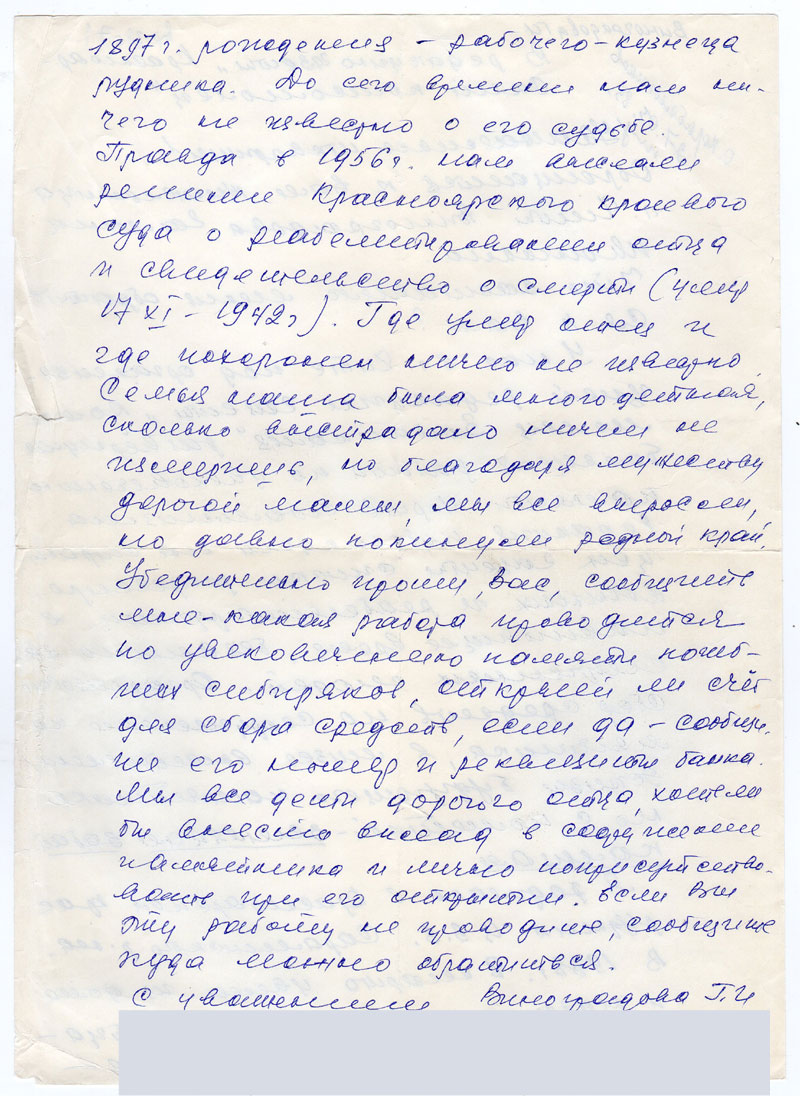 1897 г. рождения – рабочего-кузнеца
рудника. До сего времени нам ни-
чего не известно о его судьбе.
Правда в 1956 г. нам выслали
решение Красноярского краевого
суда о реабелитировании отца
и свидетельство о смерти (умер
17 XI – 1942 г). Где умер отец и
где похоронен ничего не известно.
Семья наша была многодетная,
сколько выстрадано ничем не
измеришь, но благодаря мужеству
дорогой мамы, мы все выросли,
но давно покинули родной край.
Убедительно прошу, Вас, сообщить
мне – какая работа проводится
по увековечению памяти погиб-
ших сибиряков, открыт ли счёт
для сбора средств, если да – сообщи-
те его номер и реквизиты банка.
Мы все дети дорогого отца, хотели
бы внести вклад в сооружение
памятника и лично поприсутство-
вать при его открытии. Если Вы
эту работу не проводите, сообщите
куда можно обратиться.
С уважением Виноградова Г.И